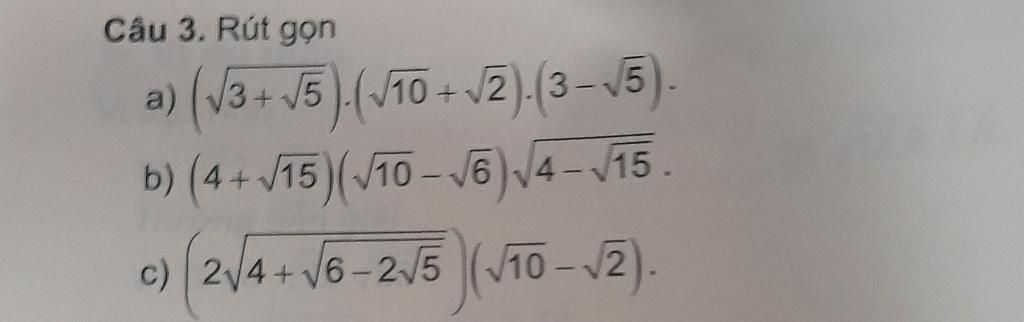 Câu 3. Rút gọn
a) (√(3 + √5)).(√10 + √2).(3 − √5).
b) (4 + √15)(√10 − √6)√(4 − √15).
c) (2√(4 + √(6 − 2√5)))(√10 − √2).